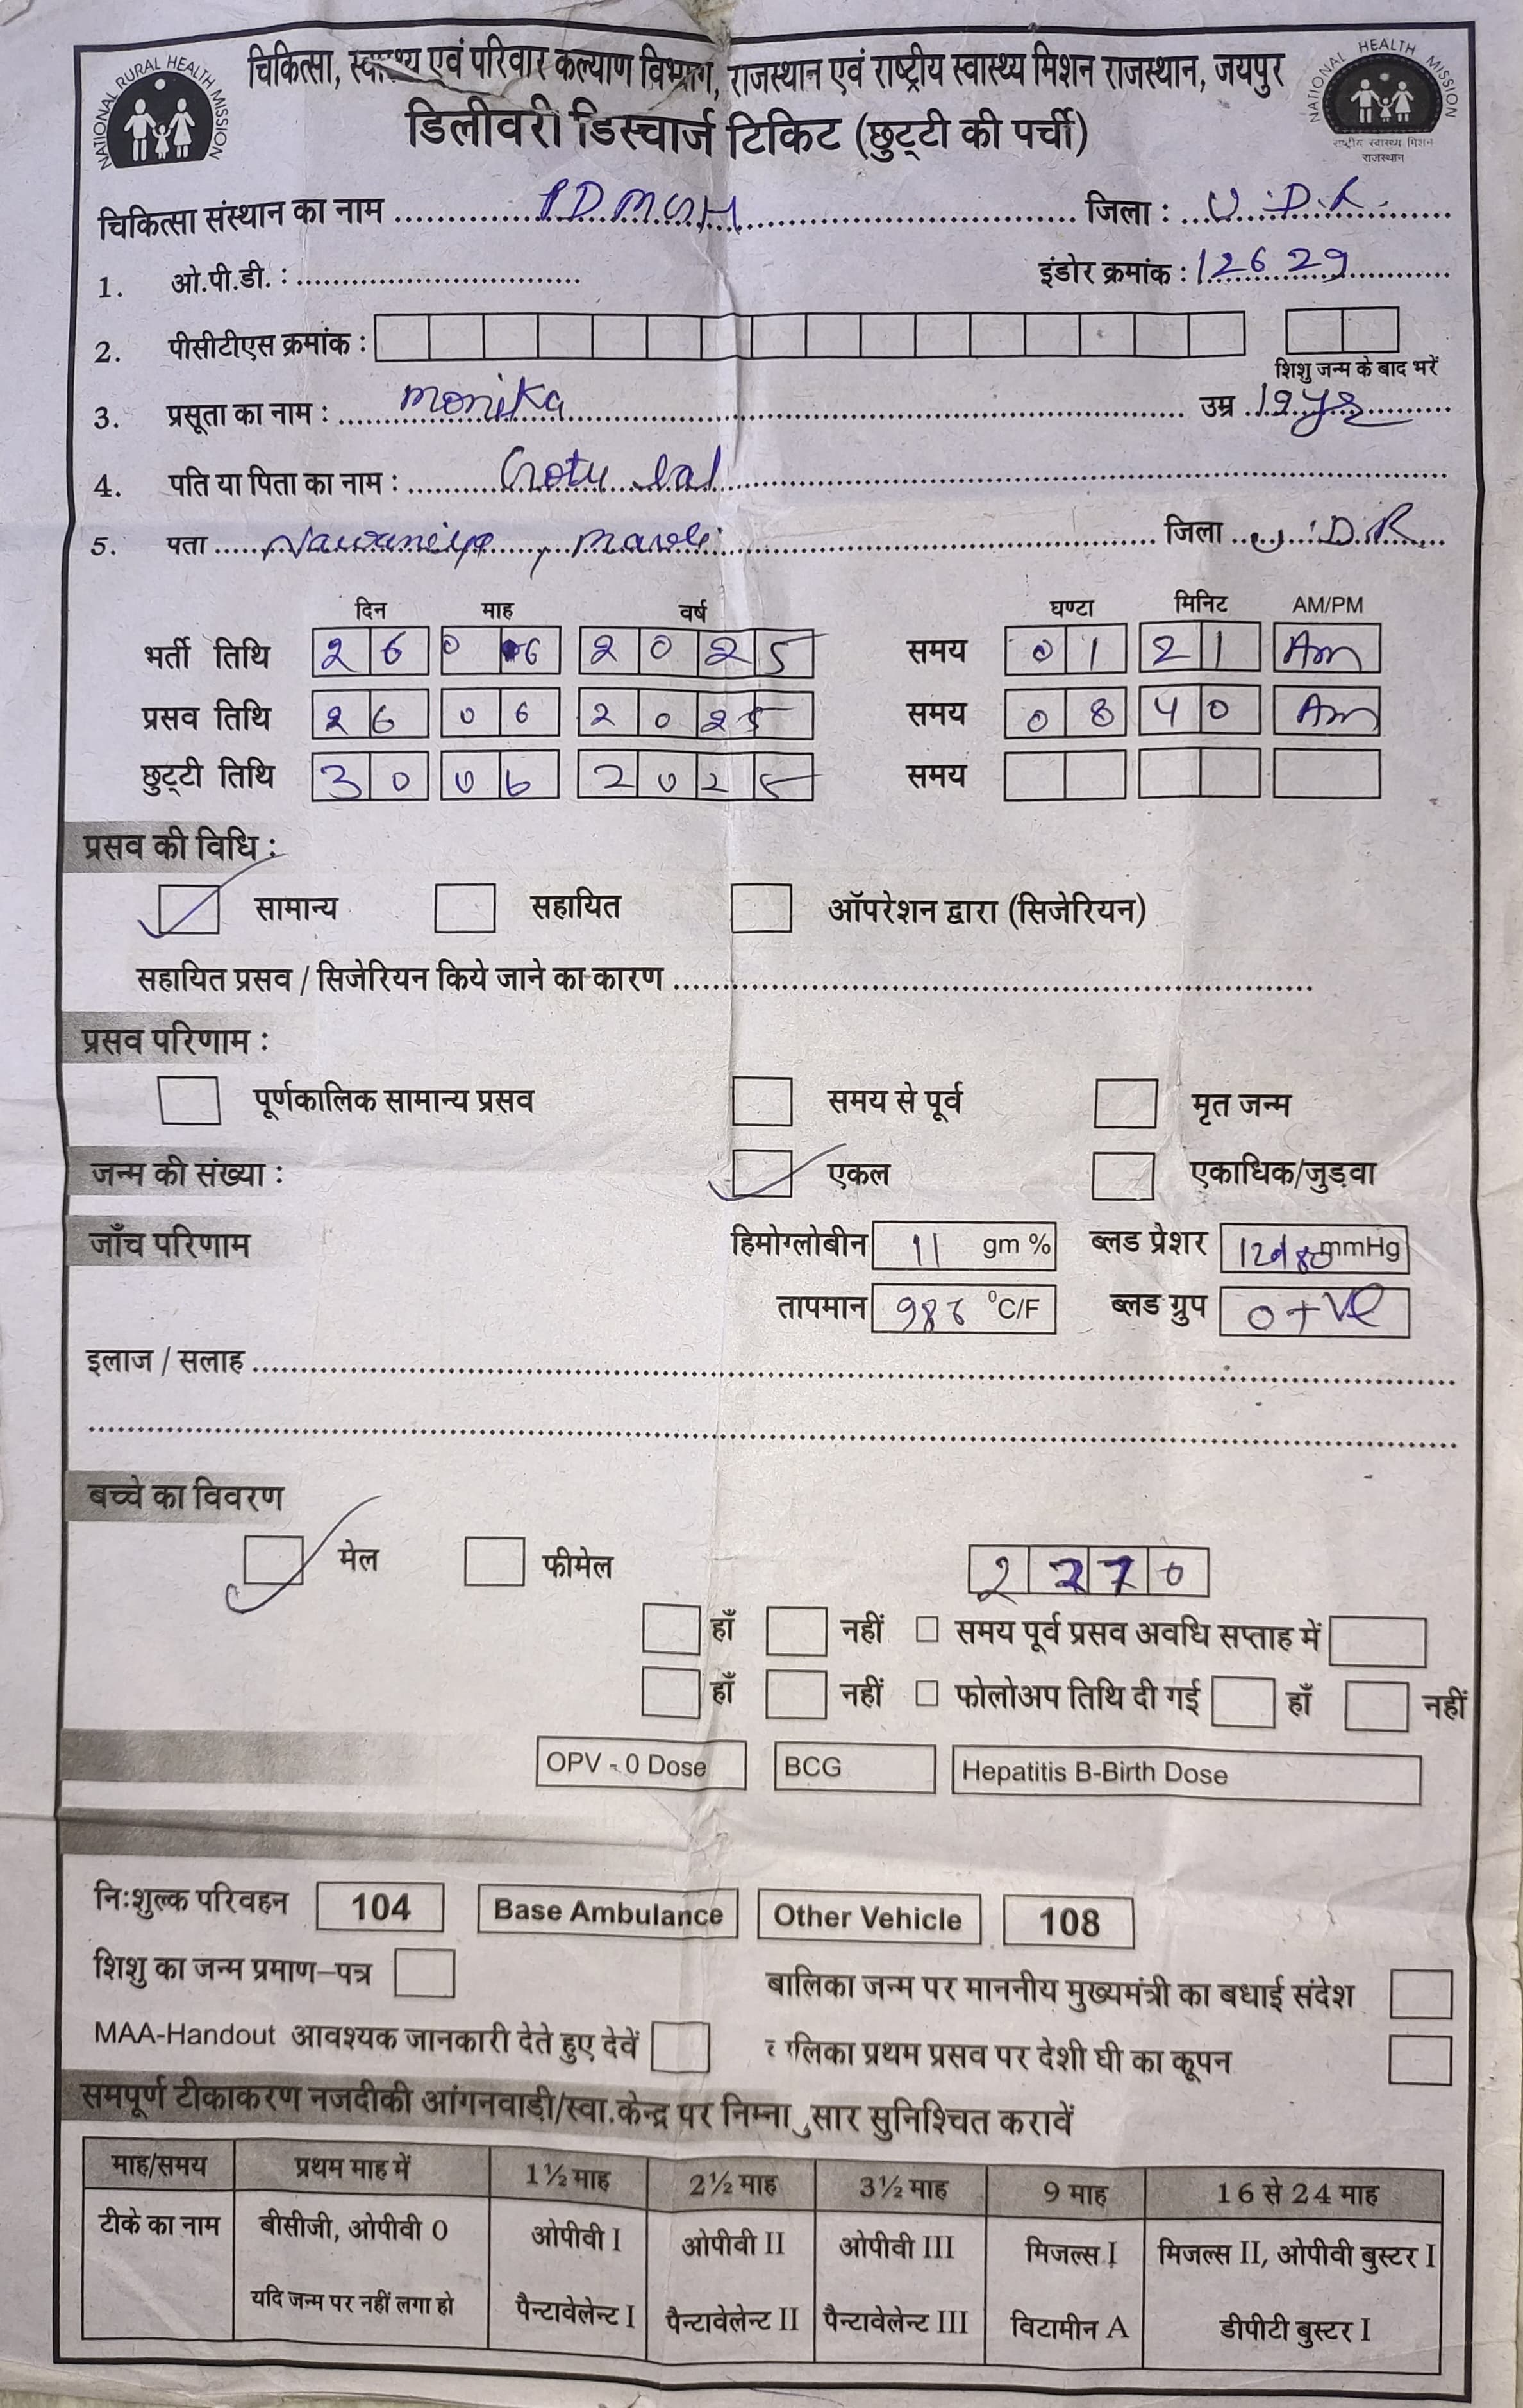 NATIONAL RURAL HEALTH MISSION
NATIONAL HEALTH MISSION
राष्ट्रीय स्वास्थ्य मिशन
राजस्थान
चिकित्सा, स्वास्थ्य एवं परिवार कल्याण विभाग, राजस्थान एवं राष्ट्रीय स्वास्थ्य मिशन राजस्थान, जयपुर
डिलीवरी डिस्चार्ज टिकिट (छुट्टी की पर्ची)
चिकित्सा संस्थान का नाम ............ जिला : U.D.R.
1. ओ.पी.डी. : ............ इंडोर क्रमांक : 12629
2. पीसीटीएस क्रमांक :
शिशु जन्म के बाद भरें
3. प्रसूता का नाम : Monika उम्र 19 yrs
4. पति या पिता का नाम : Gotu Lal
5. पता ............ जिला U.D.R.
दिन माह वर्ष घण्टा मिनिट AM/PM
भर्ती तिथि 26 06 2025 समय 01 21 Am
प्रसव तिथि 26 06 2025 समय 08 40 Am
छुट्टी तिथि 30 06 2025 समय
प्रसव की विधि :
सामान्य सहायित ऑपरेशन द्वारा (सिजेरियन)
सहायित प्रसव / सिजेरियन किये जाने का कारण ............
प्रसव परिणाम :
पूर्णकालिक सामान्य प्रसव समय से पूर्व मृत जन्म
जन्म की संख्या : एकल एकाधिक/जुड़वा
जाँच परिणाम हिमोग्लोबीन 11 gm % ब्लड प्रेशर 120/80 mmHg
तापमान 986 °C/F ब्लड ग्रुप O+ve
इलाज / सलाह ............
बच्चे का विवरण
मेल फीमेल 2270
हाँ नहीं समय पूर्व प्रसव अवधि सप्ताह में
हाँ नहीं फोलोअप तिथि दी गई हाँ नहीं
OPV - 0 Dose BCG Hepatitis B-Birth Dose
निःशुल्क परिवहन 104 Base Ambulance Other Vehicle 108
शिशु का जन्म प्रमाण-पत्र बालिका जन्म पर माननीय मुख्यमंत्री का बधाई संदेश
MAA-Handout आवश्यक जानकारी देते हुए देवें लिका प्रथम प्रसव पर देशी घी का कूपन
समपूर्ण टीकाकरण नजदीकी आंगनवाडी/स्वा.केन्द्र पर निम्नानुसार सुनिश्चित करावें
माह/समय प्रथम माह में 1½ माह 2½ माह 3½ माह 9 माह 16 से 24 माह
टीके का नाम बीसीजी, ओपीवी 0 ओपीवी I ओपीवी II ओपीवी III मिजल्स I मिजल्स II, ओपीवी बुस्टर I
यदि जन्म पर नहीं लगा हो पैन्टावेलेन्ट I पैन्टावेलेन्ट II पैन्टावेलेन्ट III विटामीन A डीपीटी बुस्टर I